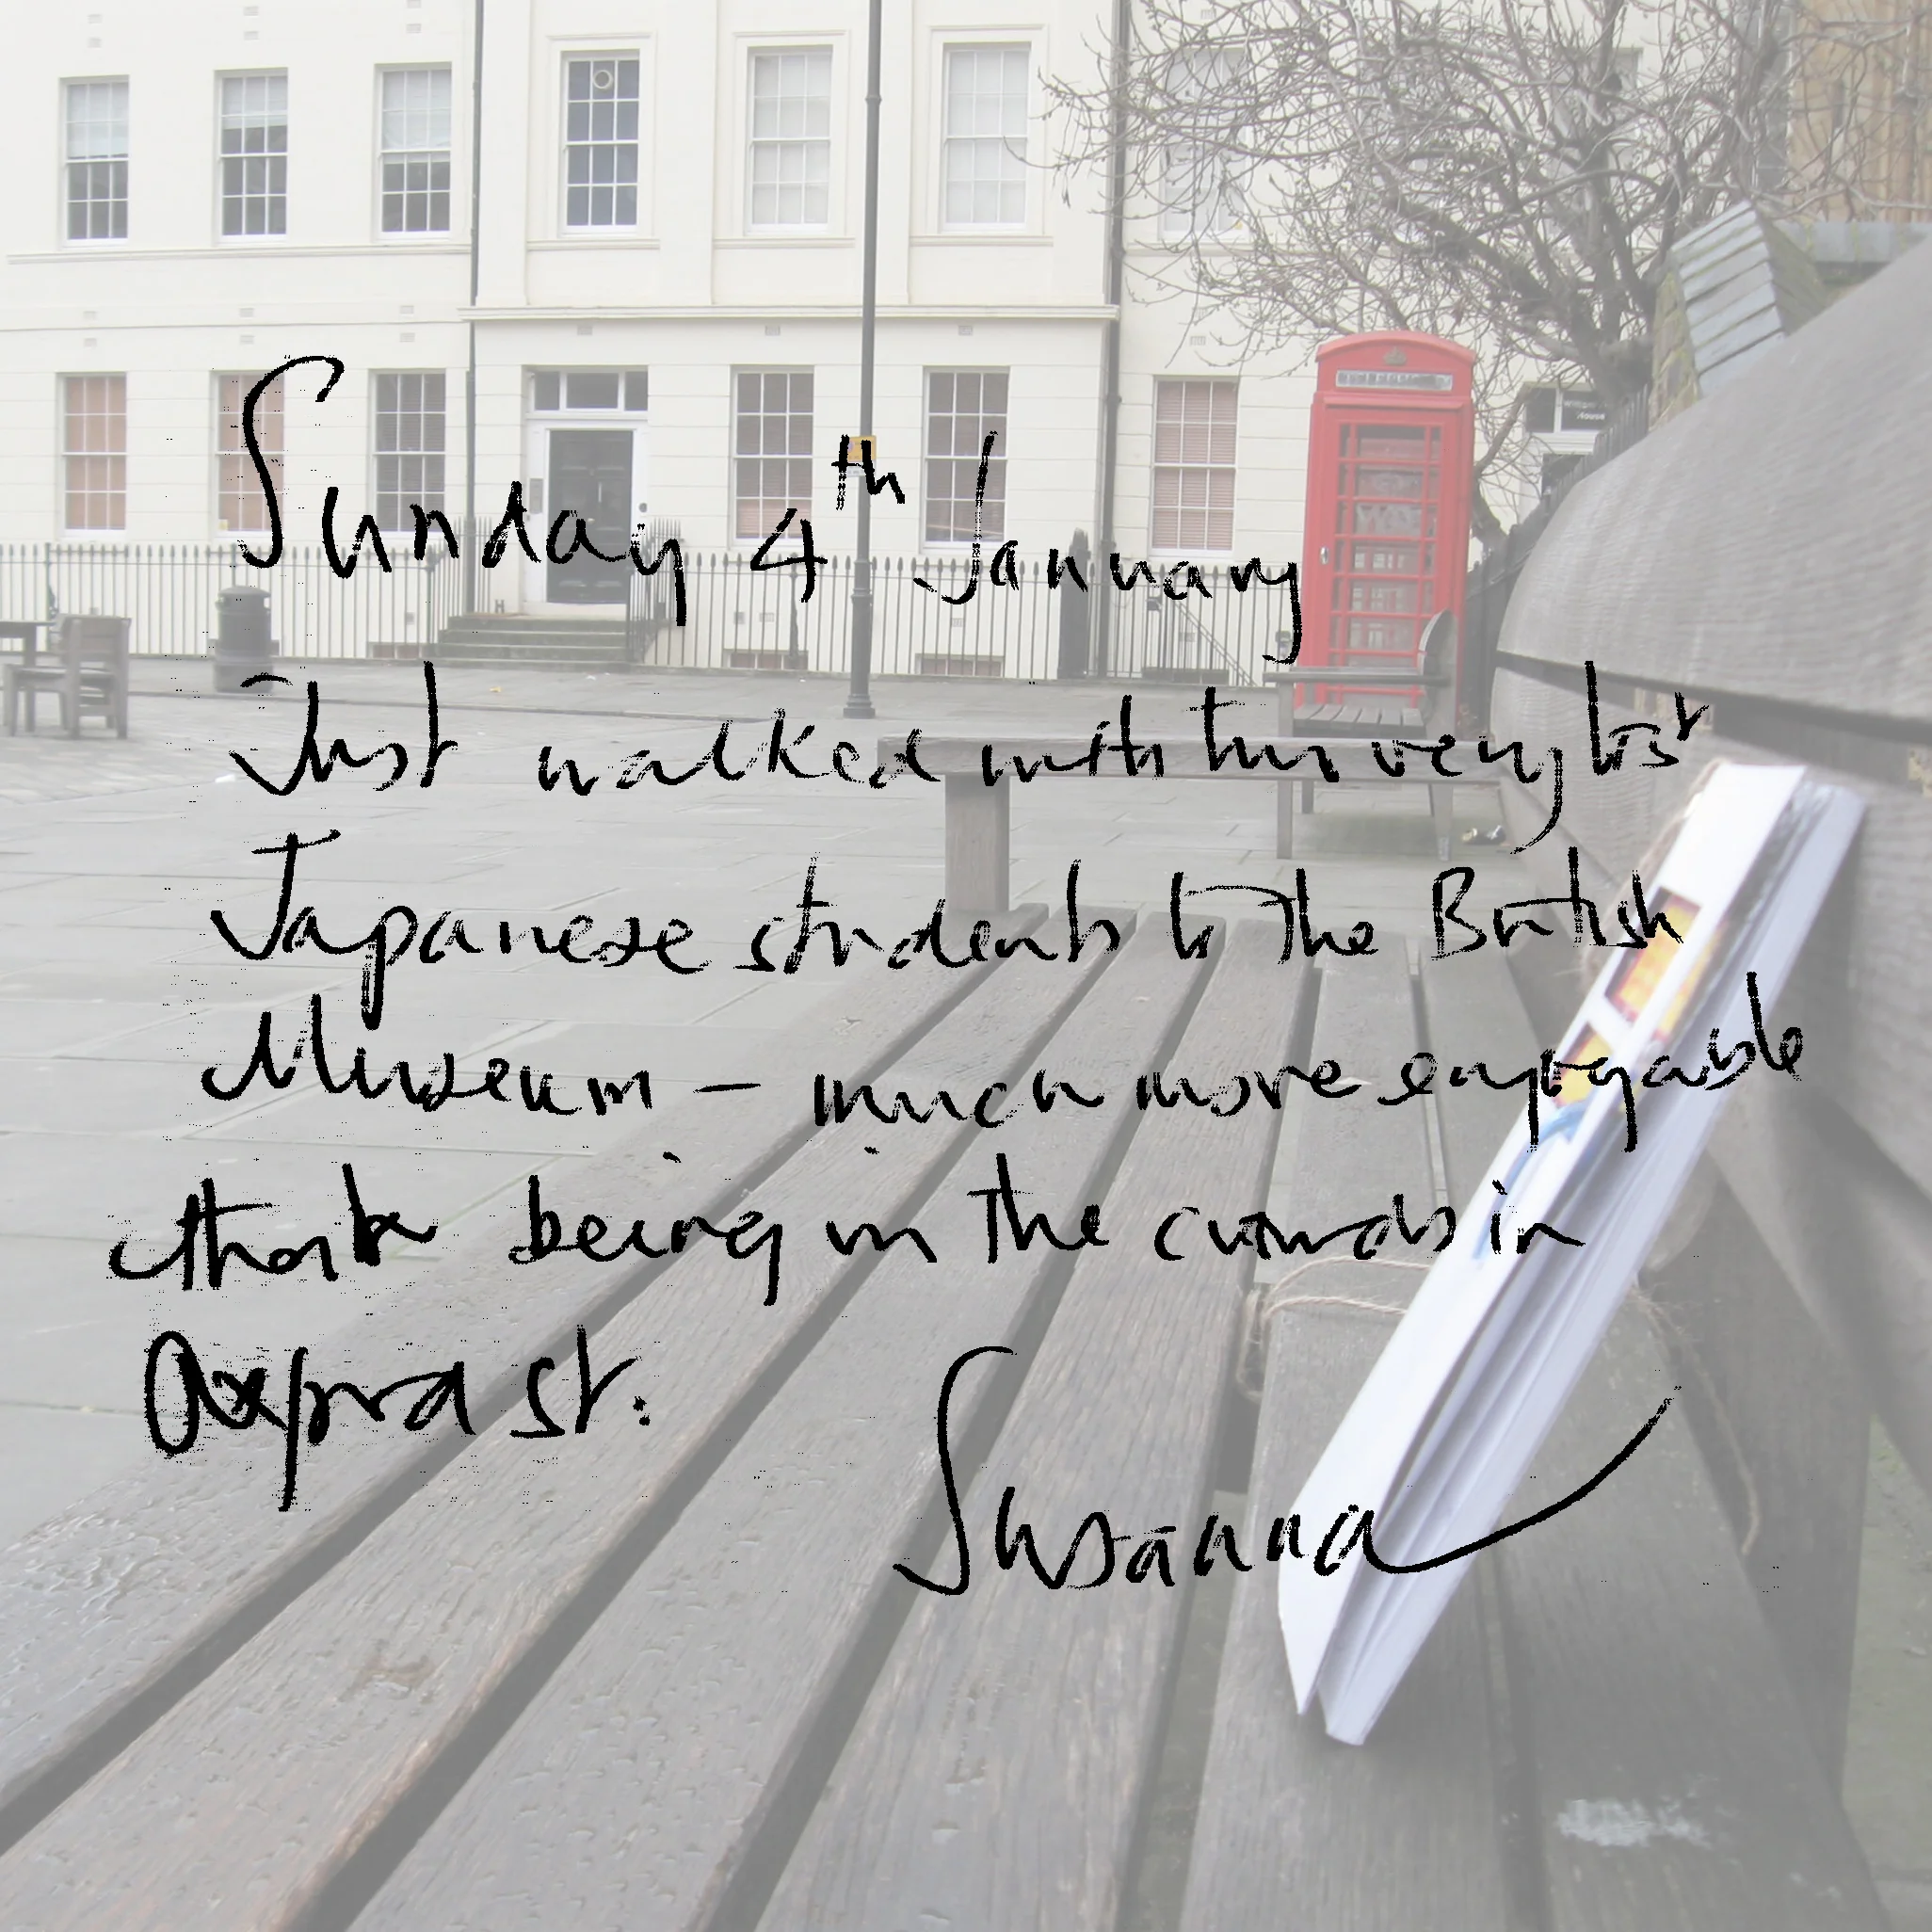 Sunday 4th January
Just walked with two very lost
Japanese students to the British
Museum – much more enjoyable
than being in the crowds in
Oxford St.
Susanna